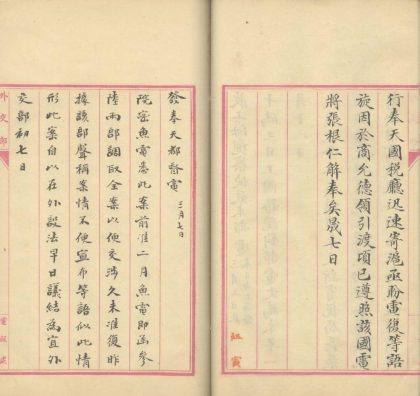 行奉天税廳迅速寄滬函盼電復等語
旋因於商允德領引渡項已遵照該國電
將張根仁解奉矣晟七日
紐寅
發奉天都督電 三月七日
院密魚電悉此案前准二月魚電即函參
陸兩部調取全案以便交涉久未准復昨
據該部聲稱案情不便宣布等語似此情
形此案自以在外設法早日議結為宜外
交部初七日
外交部